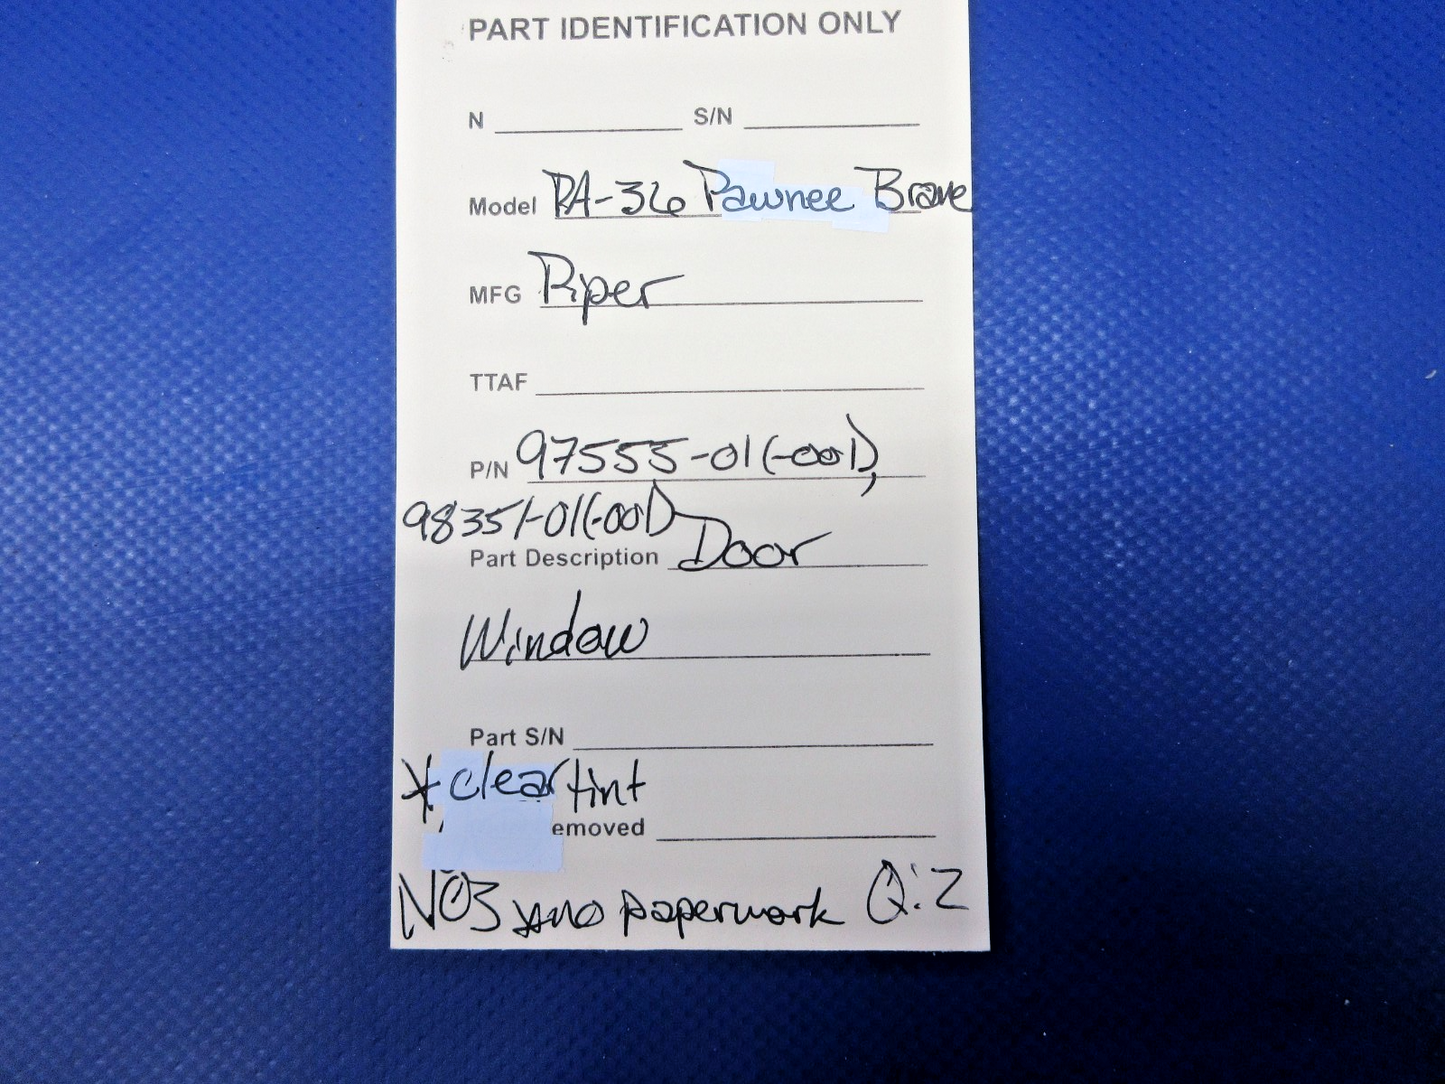 PART IDENTIFICATION ONLY
N S/N
Model PA-36 Pawnee Brave
MFG Piper
TTAF
P/N 97555-01(-001),
98351-01(-001)
Part Description Door
Window
Part S/N
* clear tint
emoved
NOS no paperwork Q:2